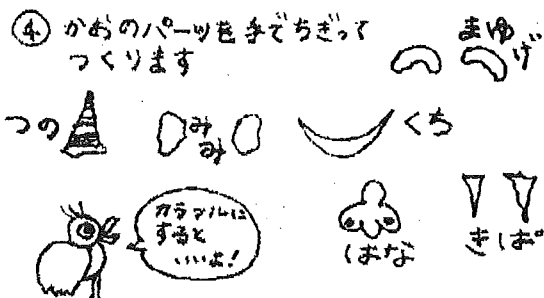 ④ かおのパーツを手でちぎって
つくります
まゆげ
つの
みみ
くち
カラフルに
すると
いいよ!
はな
きば